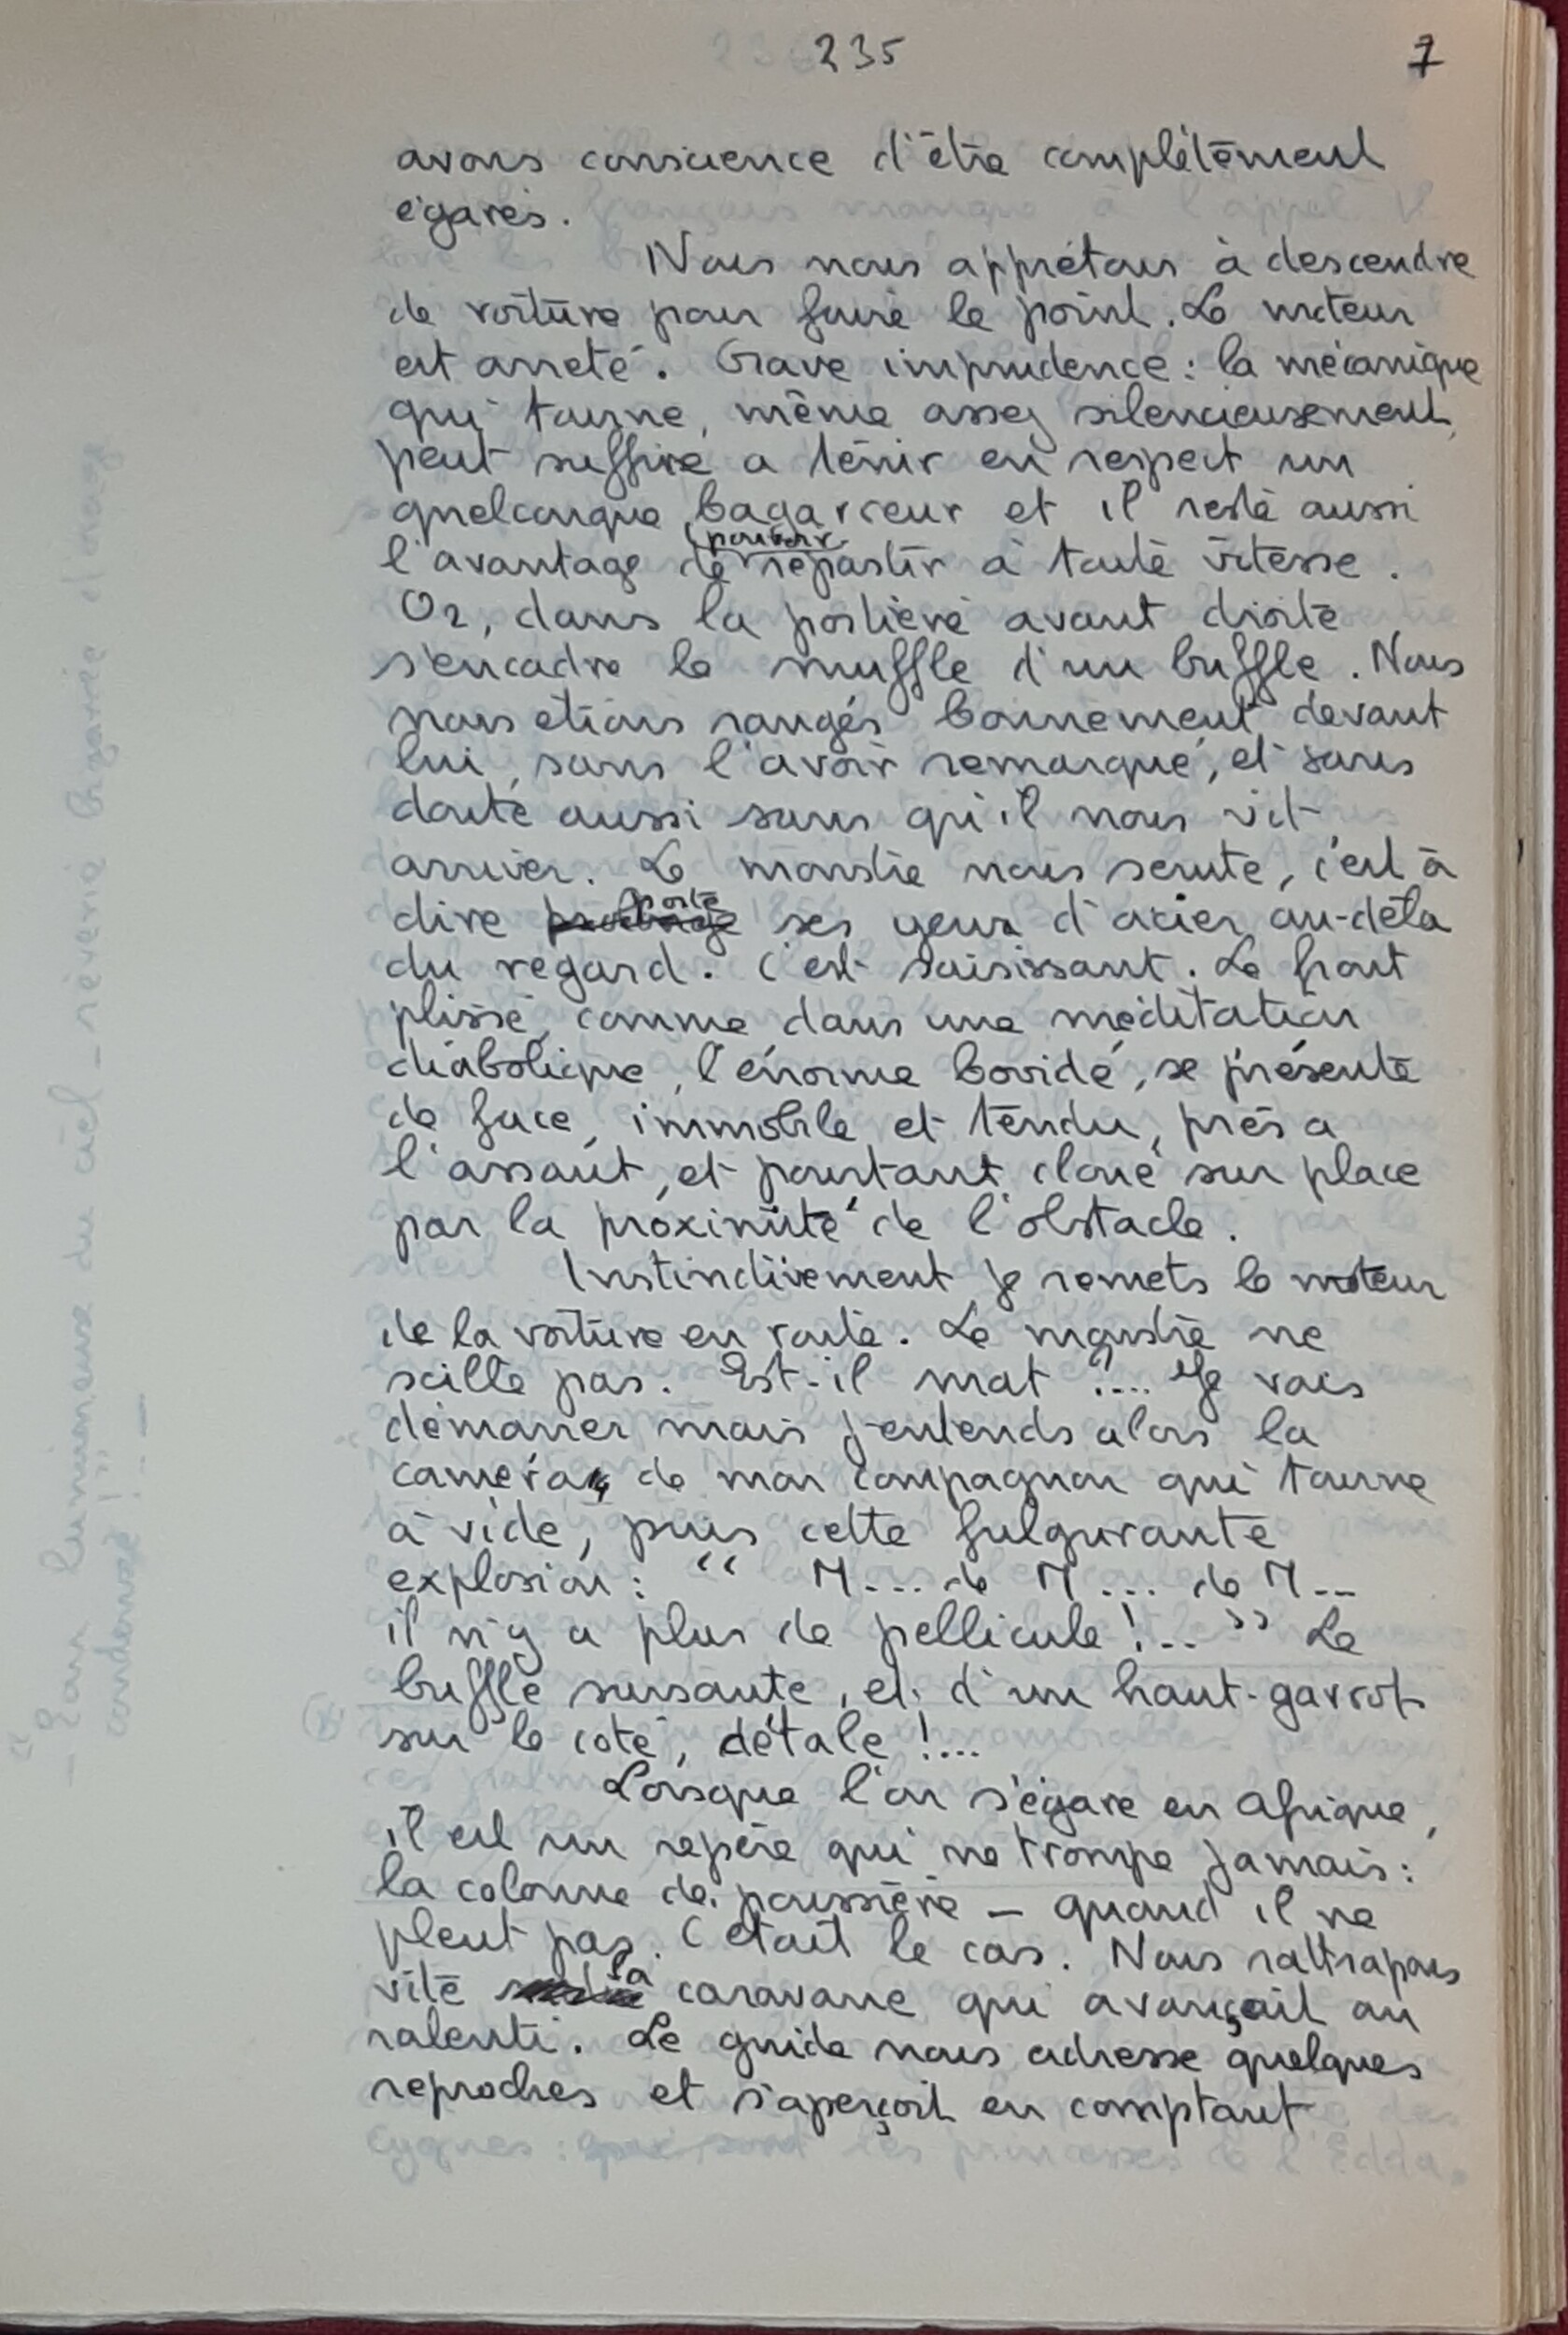 235
7
avons conscience d'être complétement
égarés.
Nous nous apprétons à descendre
de voiture pour faire le point. Le moteur
est arreté. Grave imprudence : la mécanique
qui tourne, même assez silencieusement,
peut suffire a tenir en respect un
quelconque bagarreur et il reste aussi
pouvoir
l'avantage de repartir à toute vitesse.
Or, dans la portière avant droite
s'encadre le muffle d'un buffle. Nous
nous etions rangés bonnement devant
lui, sans l'avoir remarqué, et sans
doute aussi sans qu'il nous vit
arriver. Le monstre nous scrute, c'est à
porte
dire ses yeux d'acier au-delà
du regard. C'est saisissant. Le front
plissé, comme dans une méditation
diabolique, l'énorme bovidé, se présente
de face, immobile et tendu, près a
l'assaut, et pourtant cloué sur place
par la proximité de l'obstacle.
Instinctivement je remets le moteur
de la voiture en route. Le monstre ne
scille pas. Est-il mat ?.... Je vais
démarrer mais j'entends alors la
caméra de mon compagnon qui tourne
à vide, puis cette fulgurante
explosion : " M... de M... de M--
il n'y a plus de pellicule !... " Le
buffle sursaute, et d'un haut-garrot
sur le coté, détale !...
Lorsque l'on s'égare en Afrique,
il est un repère qui ne trompe jamais :
la colonne de poussière — quand il ne
pleut pas. C'était le cas. Nous rattrapons
la
vite caravane qui avançait au
ralenti. Le guide nous adresse quelques
reproches et s'aperçoit en comptant